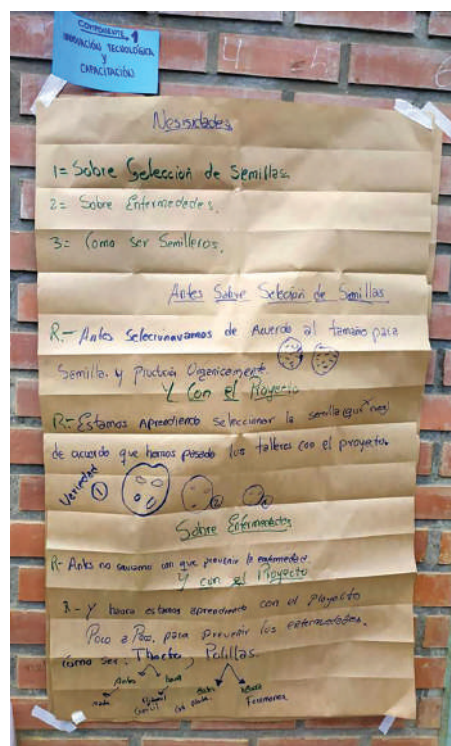 COMPONENTE 1
INNOVACIÓN TECNOLÓGICA
Y
CAPACITACIÓN
4 5
Nesisidades
1= Sobre Selección de Semillas
2= Sobre Enfermedades.
3= Como Ser Semilleros.
Antes Sobre Selección de Semillas
R.- Antes Selecionavamos de Acuerdo al tamaño para
Semilla. y Producia Organicamente.
Y Con el Proyecto
R.- Estamos Aprendiendo Seleccionar la semilla
de acuerdo que hemos pasado los talleres con el proyecto.
Variedad
1 2
Sobre Enfermedades
R- Antes no saviamos con que prevenir la enfermedad.
Y con el Proyecto
R- Y haora estamos aprendiendo con el Proyecto
Poco a Poco. para Prevenir las enfermedades.
Como ser: Polillas.
Antes
nada
Feromonas